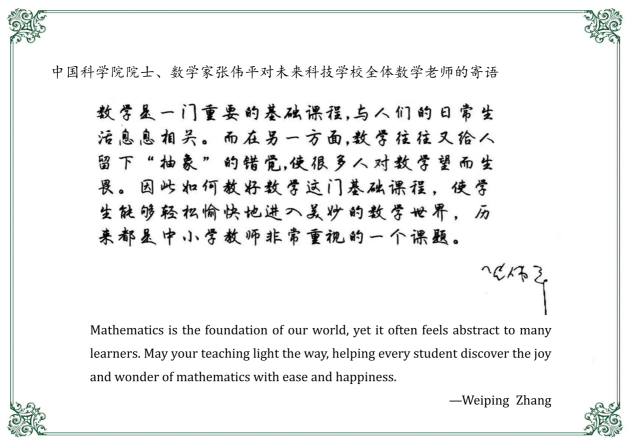 中国科学院院士、数学家张伟平对未来科技学校全体数学老师的寄语
数学是一门重要的基础课程,与人们的日常生
活息息相关。而在另一方面,数学往往又给人
留下“抽象”的错觉,使很多人对数学望而生
畏。因此如何教好数学这门基础课程，使学
生能够轻松愉快地进入美妙的数学世界，历
来都是中小学教师非常重视的一个课题。
张伟平
Mathematics is the foundation of our world, yet it often feels abstract to many
learners. May your teaching light the way, helping every student discover the joy
and wonder of mathematics with ease and happiness.
—Weiping Zhang